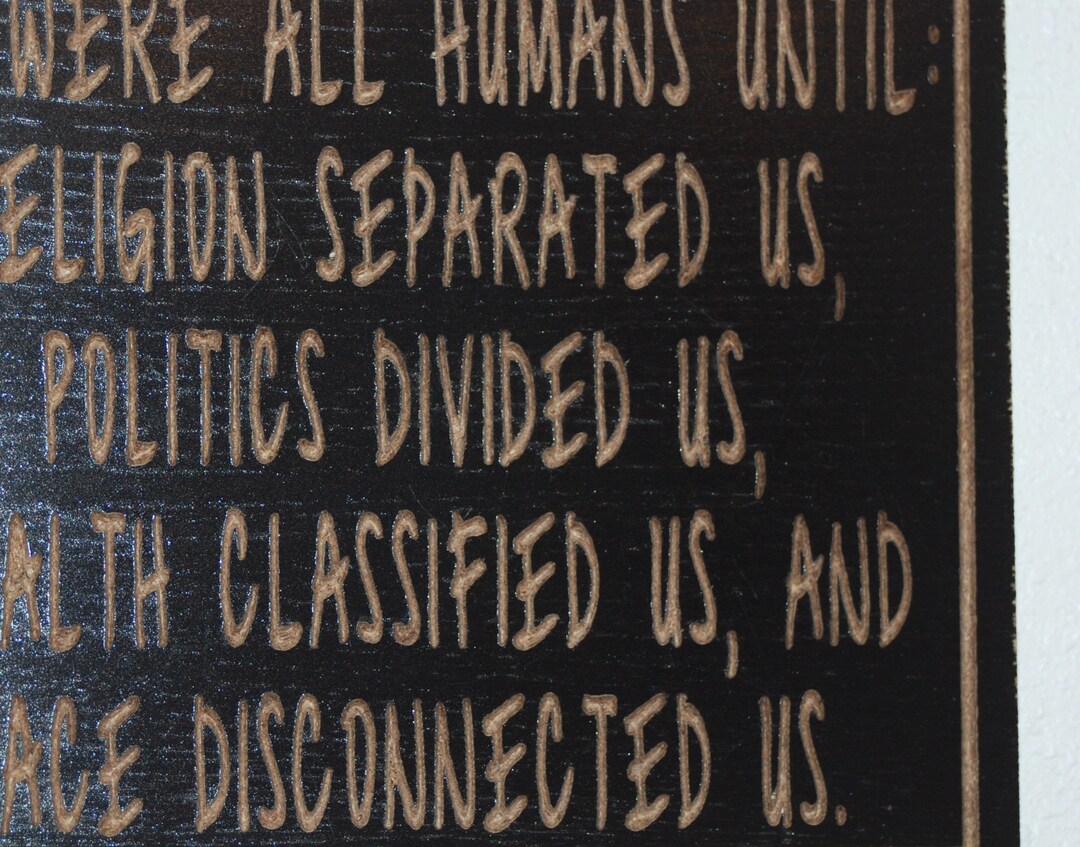 WERE ALL HUMANS UNTIL:
ELIGION SEPARATED US,
POLITICS DIVIDED US,
ALTH CLASSIFIED US, AND
ACE DISCONNECTED US.